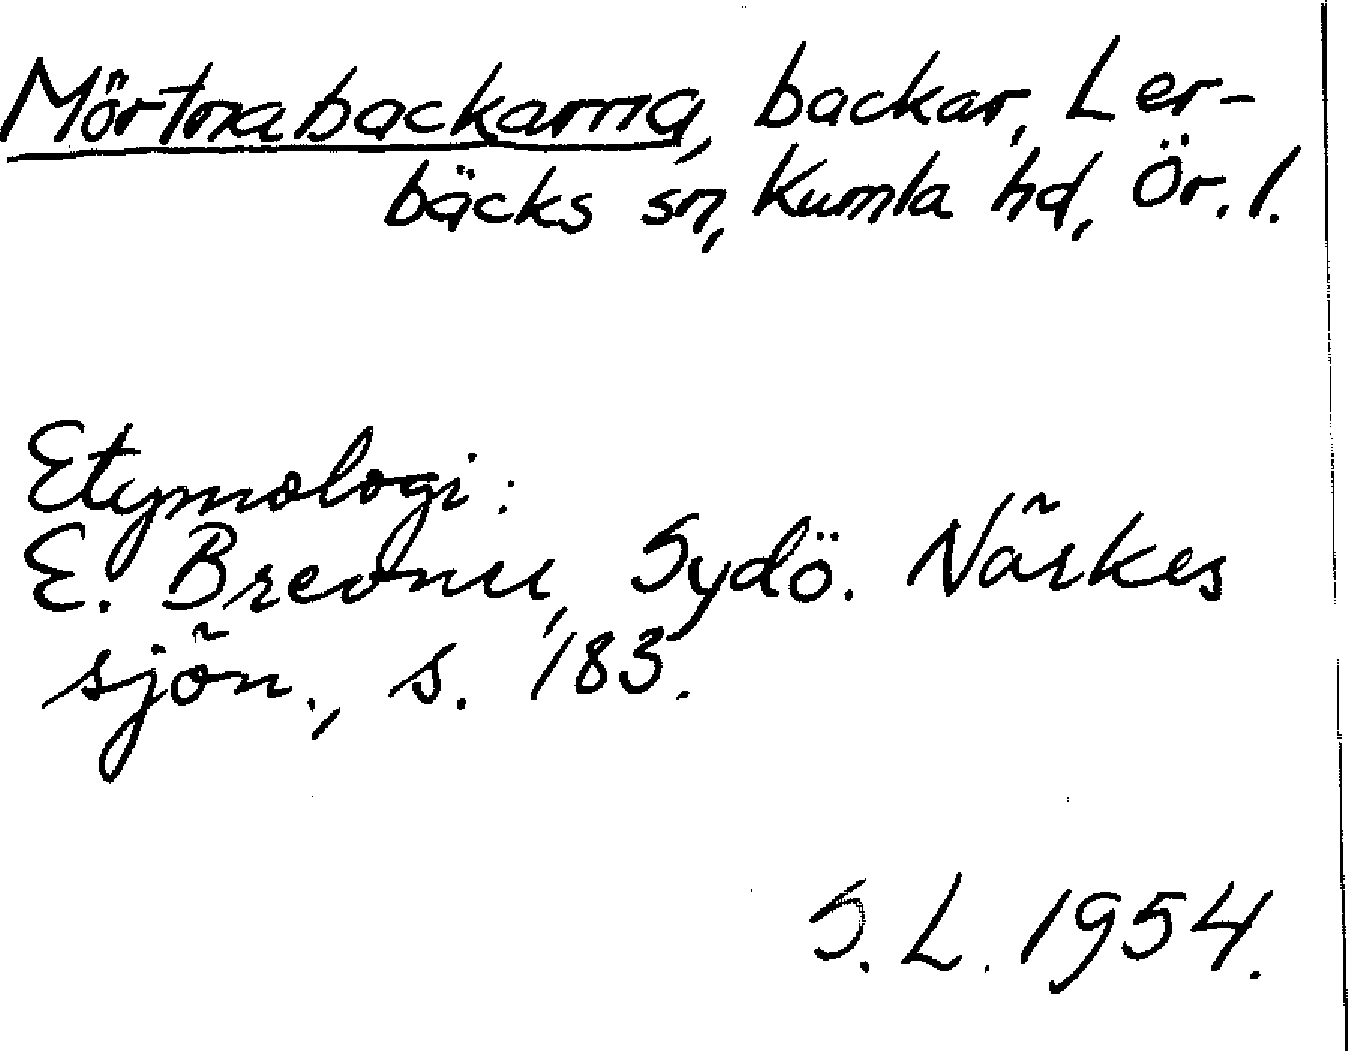 Mörtnabackarna, backar, Ler-
bäcks sn, Kumla hd, Ör. l.
Etymologi:
E. Brevner, Sydö. Närkes
sjön., s. 183.
S. L. 1954.